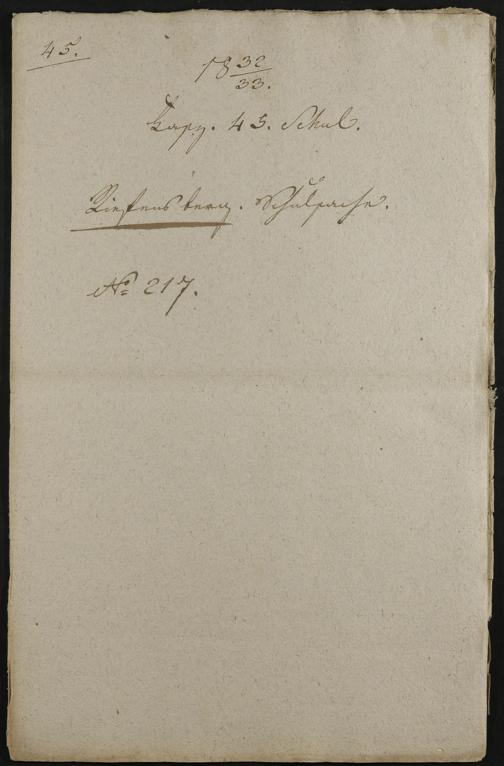 45.
18 32/33.
Fasz. 45. Schul.
Riefensberg. Schulsache.
No 217.